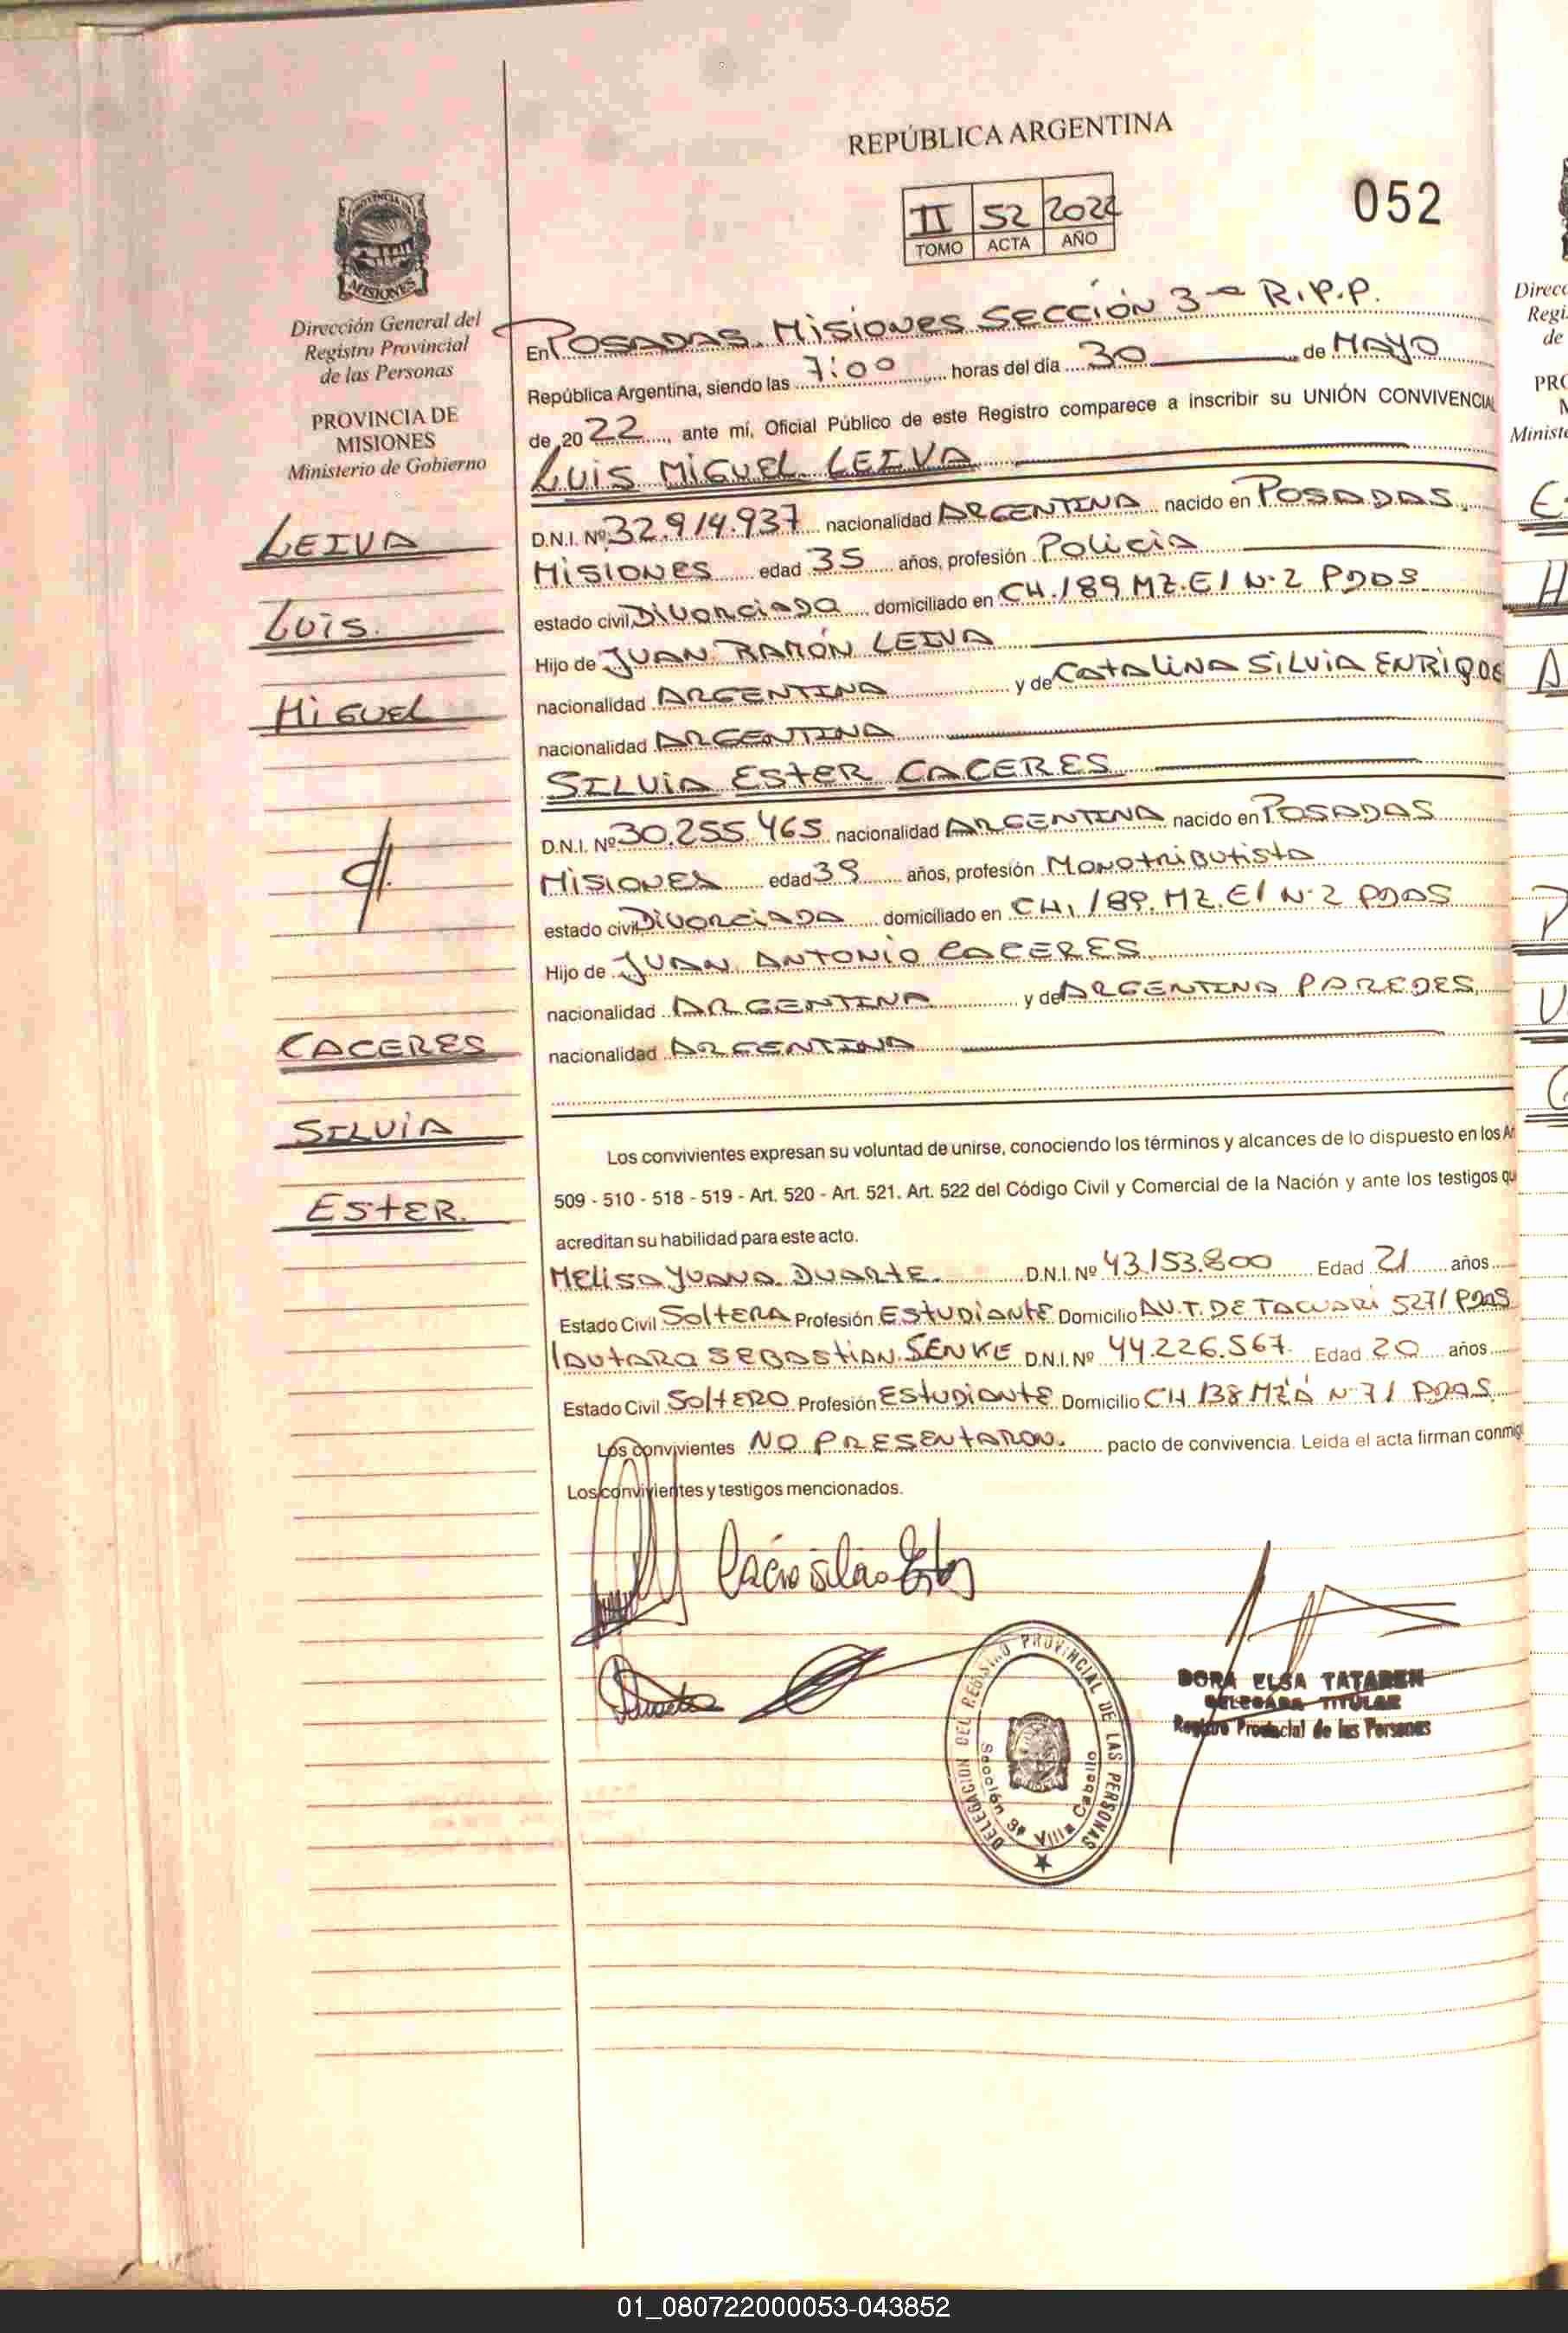 REPÚBLICA ARGENTINA
052
II 52 2022
TOMO ACTA AÑO
MISIONES
Dirección General del
Registro Provincial
de las Personas
PROVINCIA DE
MISIONES
Ministerio de Gobierno
LEIVA
Luis
MiGUEL
CACERES
SILVIA
ESTER.
En POSADAS. MiSiONES SECCIÓN 3 R.P.P.
República Argentina, siendo las 7:00 horas del día 30 de MAYO
de 2022, ante mí, Oficial Público de este Registro comparece a inscribir su UNIÓN CONVIVENCIAL
LUIS MIGUEL LEIVA
D.N.I. Nº 32.914.937 nacionalidad ARGENTINA nacido en POSADAS,
MISIONES edad 35 años, profesión Policia
estado civil Divorciado domiciliado en CH.189 MZ.E1 N·2 PDOS
Hijo de JUAN RAMÓN LEIVA
nacionalidad ARGENTINA y de CATALINA SILVIA ENRIQUE
nacionalidad ARGENTINA
SILVIA ESTER CACERES
D.N.I. Nº 30.255.465 nacionalidad ARGENTINA nacido en POSADAS
MISIONES edad 39 años, profesión Monotributista
estado civil DIVORCIADA domiciliado en CH. 189. MZ.E1 N·2 PDAS
Hijo de JUAN ANTONIO CACERES
nacionalidad ARGENTINA y de ARGENTINA PAREDES,
nacionalidad ARGENTINA
Los convivientes expresan su voluntad de unirse, conociendo los términos y alcances de lo dispuesto en los A
509 - 510 - 518 - 519 - Art. 520 - Art. 521. Art. 522 del Código Civil y Comercial de la Nación y ante los testigos qu
acreditan su habilidad para este acto.
MELISA JUANA DUARTE. D.N.I. Nº 43.153.800 Edad 21 años
Estado Civil SOLTERA Profesión ESTUDIANTE Domicilio AV.T. DE TACUARÍ 5271 PDAS
LAUTARO SEBASTIAN SENKE D.N.I. Nº 44.226.567 Edad 20 años
Estado Civil SOLTERO Profesión ESTUDIANTE Domicilio CH 138 MZ'A N·71 PDAS
Los convivientes NO PRESENTARON. pacto de convivencia. Leida el acta firman conmig
Los convivientes y testigos mencionados.
DORA ELSA TATAREN
DELEGADA TITULAR
Registro Provincial de las Personas
DELEGACION DEL REGISTRO PROVINCIAL DE LAS PERSONAS
Sección 3ª Villa Cabello
01_080722000053-043852